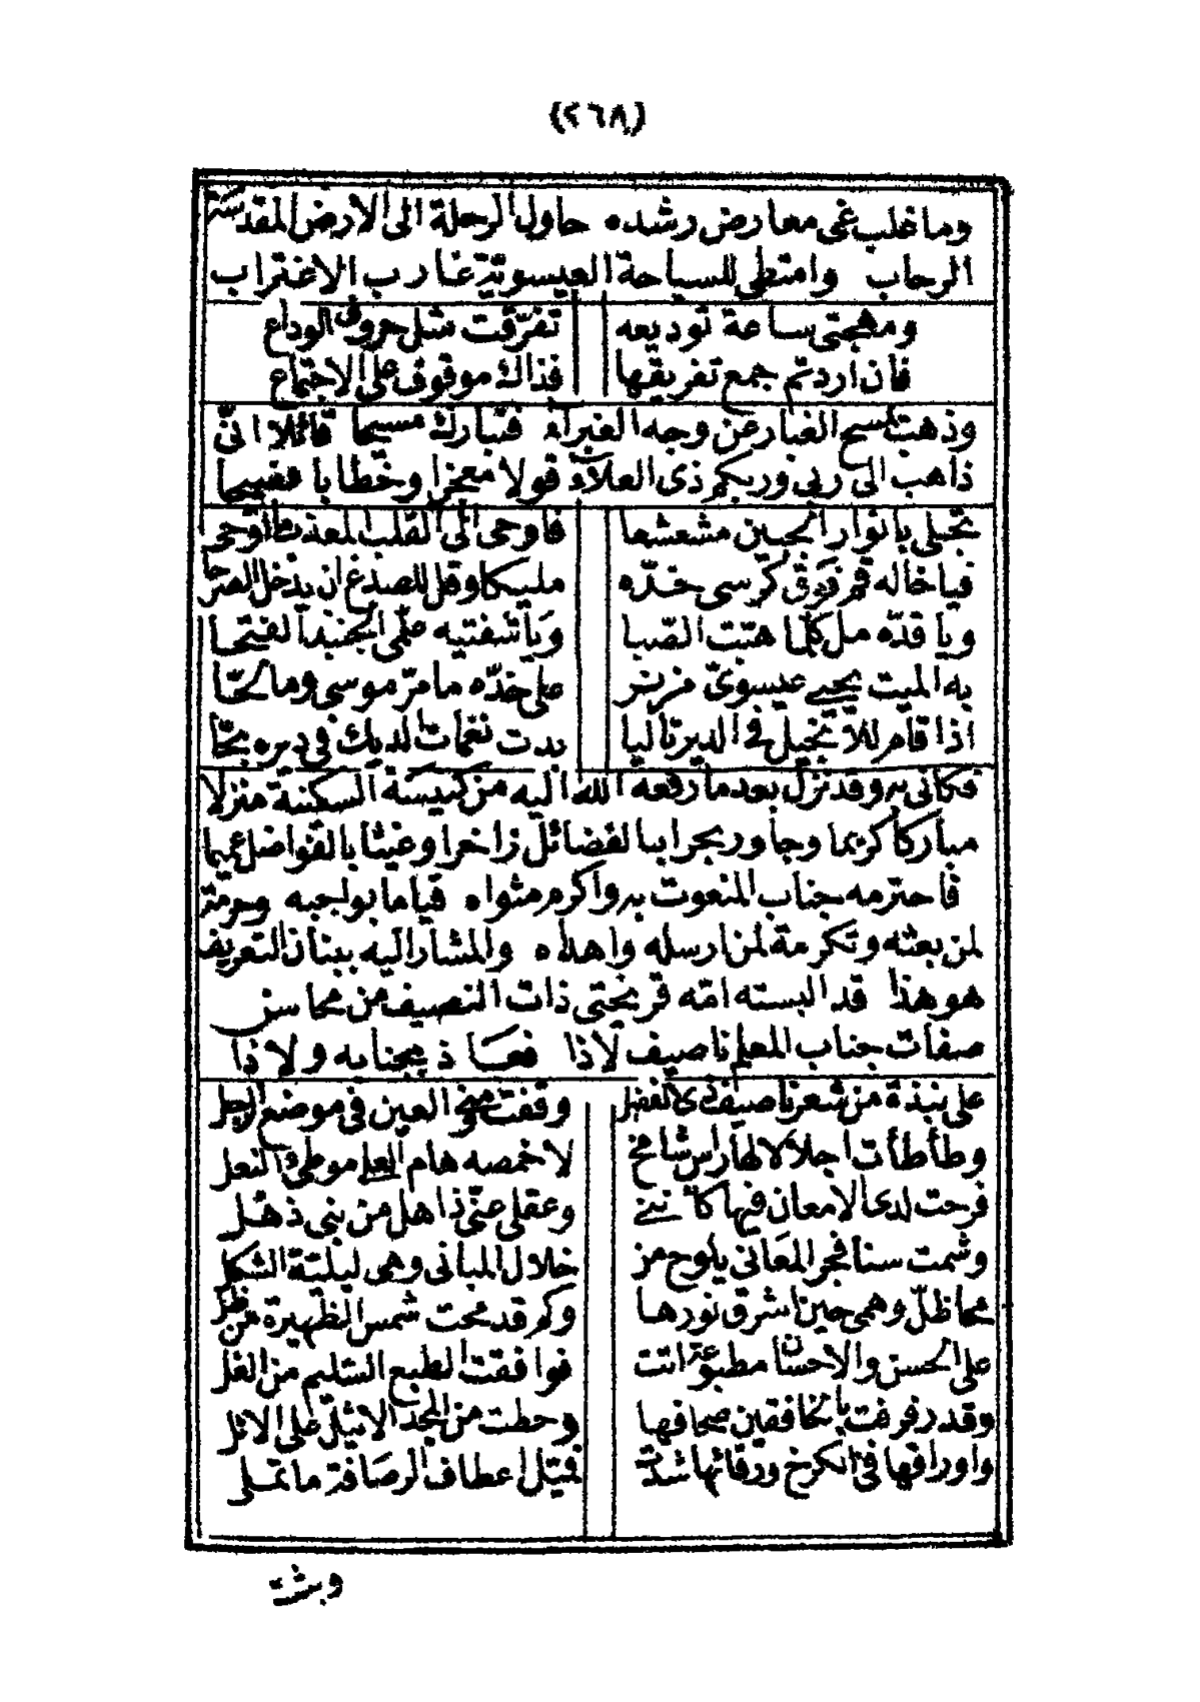 (٢٦٨)
وما غلب غى معارض رشده حاول الرحلة الى الارض المقدسة
الرحاب وامتطى للسياحة العيسوية غارب الاغتراب
ومهجتى ساعة توديعه تفرّقت شمل حروف الوداع
فان اردتم جمع تفريقها فذاك موقوف على الاجتماع
وذهب يمسح الغبار عن وجه الغبراء فتبارك مسيحا قائلا انّى
ذاهب الى ربى وربكم ذى العلاء قولا معجزا وخطابا فصيحا
تجلى بانوار الجبين مشعشعا فاوحى الى القلب المعذب ما اوحى
فيا خاله قم فوق كرسى خدّه مليكا وقل للصدغ ان يدخل الصرحا
ويا قدّه مل كلما هبّت الصّبا ويا شفتيه علّمى الجنبذ الفتحا
به الميت يحيى عيسوىّ مزنر على خدّه ما مرّ موسى وما لحّا
اذا قام للانجيل فى الدير تاليا بدت نغمات لديك فى ديره بحّا
فكانى به وقد نزل بعد ما رفعه الله اليه من كنيسة السكينة منزلا
مباركا كريما وجاور بحرا بالفضائل زاخرا وغيثا بالفواضل عميما
فاحترمه جناب المنعوت به واكرم مثواه قياما بواجبه وحرمة
لمن بعثه وتكرمة لمن ارسله واهداه والمشار اليه ببنان التعريف
هو هذا قد البسته امّه قريحتى ذات النصيف من محاسن
صفات جناب المعلم ناصيف لاذا فعاذ بجنابه ولاذا
على نبذة من شعر ناصيف ذى الفضل وقفت العين فى موضع الرجل
وطأطأت اجلالا لها راس شامخ لاخمصه هام العلى موطئ النعل
فرحت لدى الامعان فيها كأننى وعقلى عنّى ذاهل من بنى ذهل
وشمت سنا فجر المعانى يلوح من خلال المبانى وهى ليليّة الشكل
محا ظلّ وهمى حين اشرق نورها وكم قد محت شمس الظهيرة من ظل
على الحسن والاحسان مطبوعة اتت فوافقت الطبع السليم من الغل
وقد رفرفت بالخافقين صحافها وحطت من المجد الاثيل على الاثل
واوراقها فى الكرخ ورقائها شدت فميّل اعطاف الرصافة ما تملى
وبثت